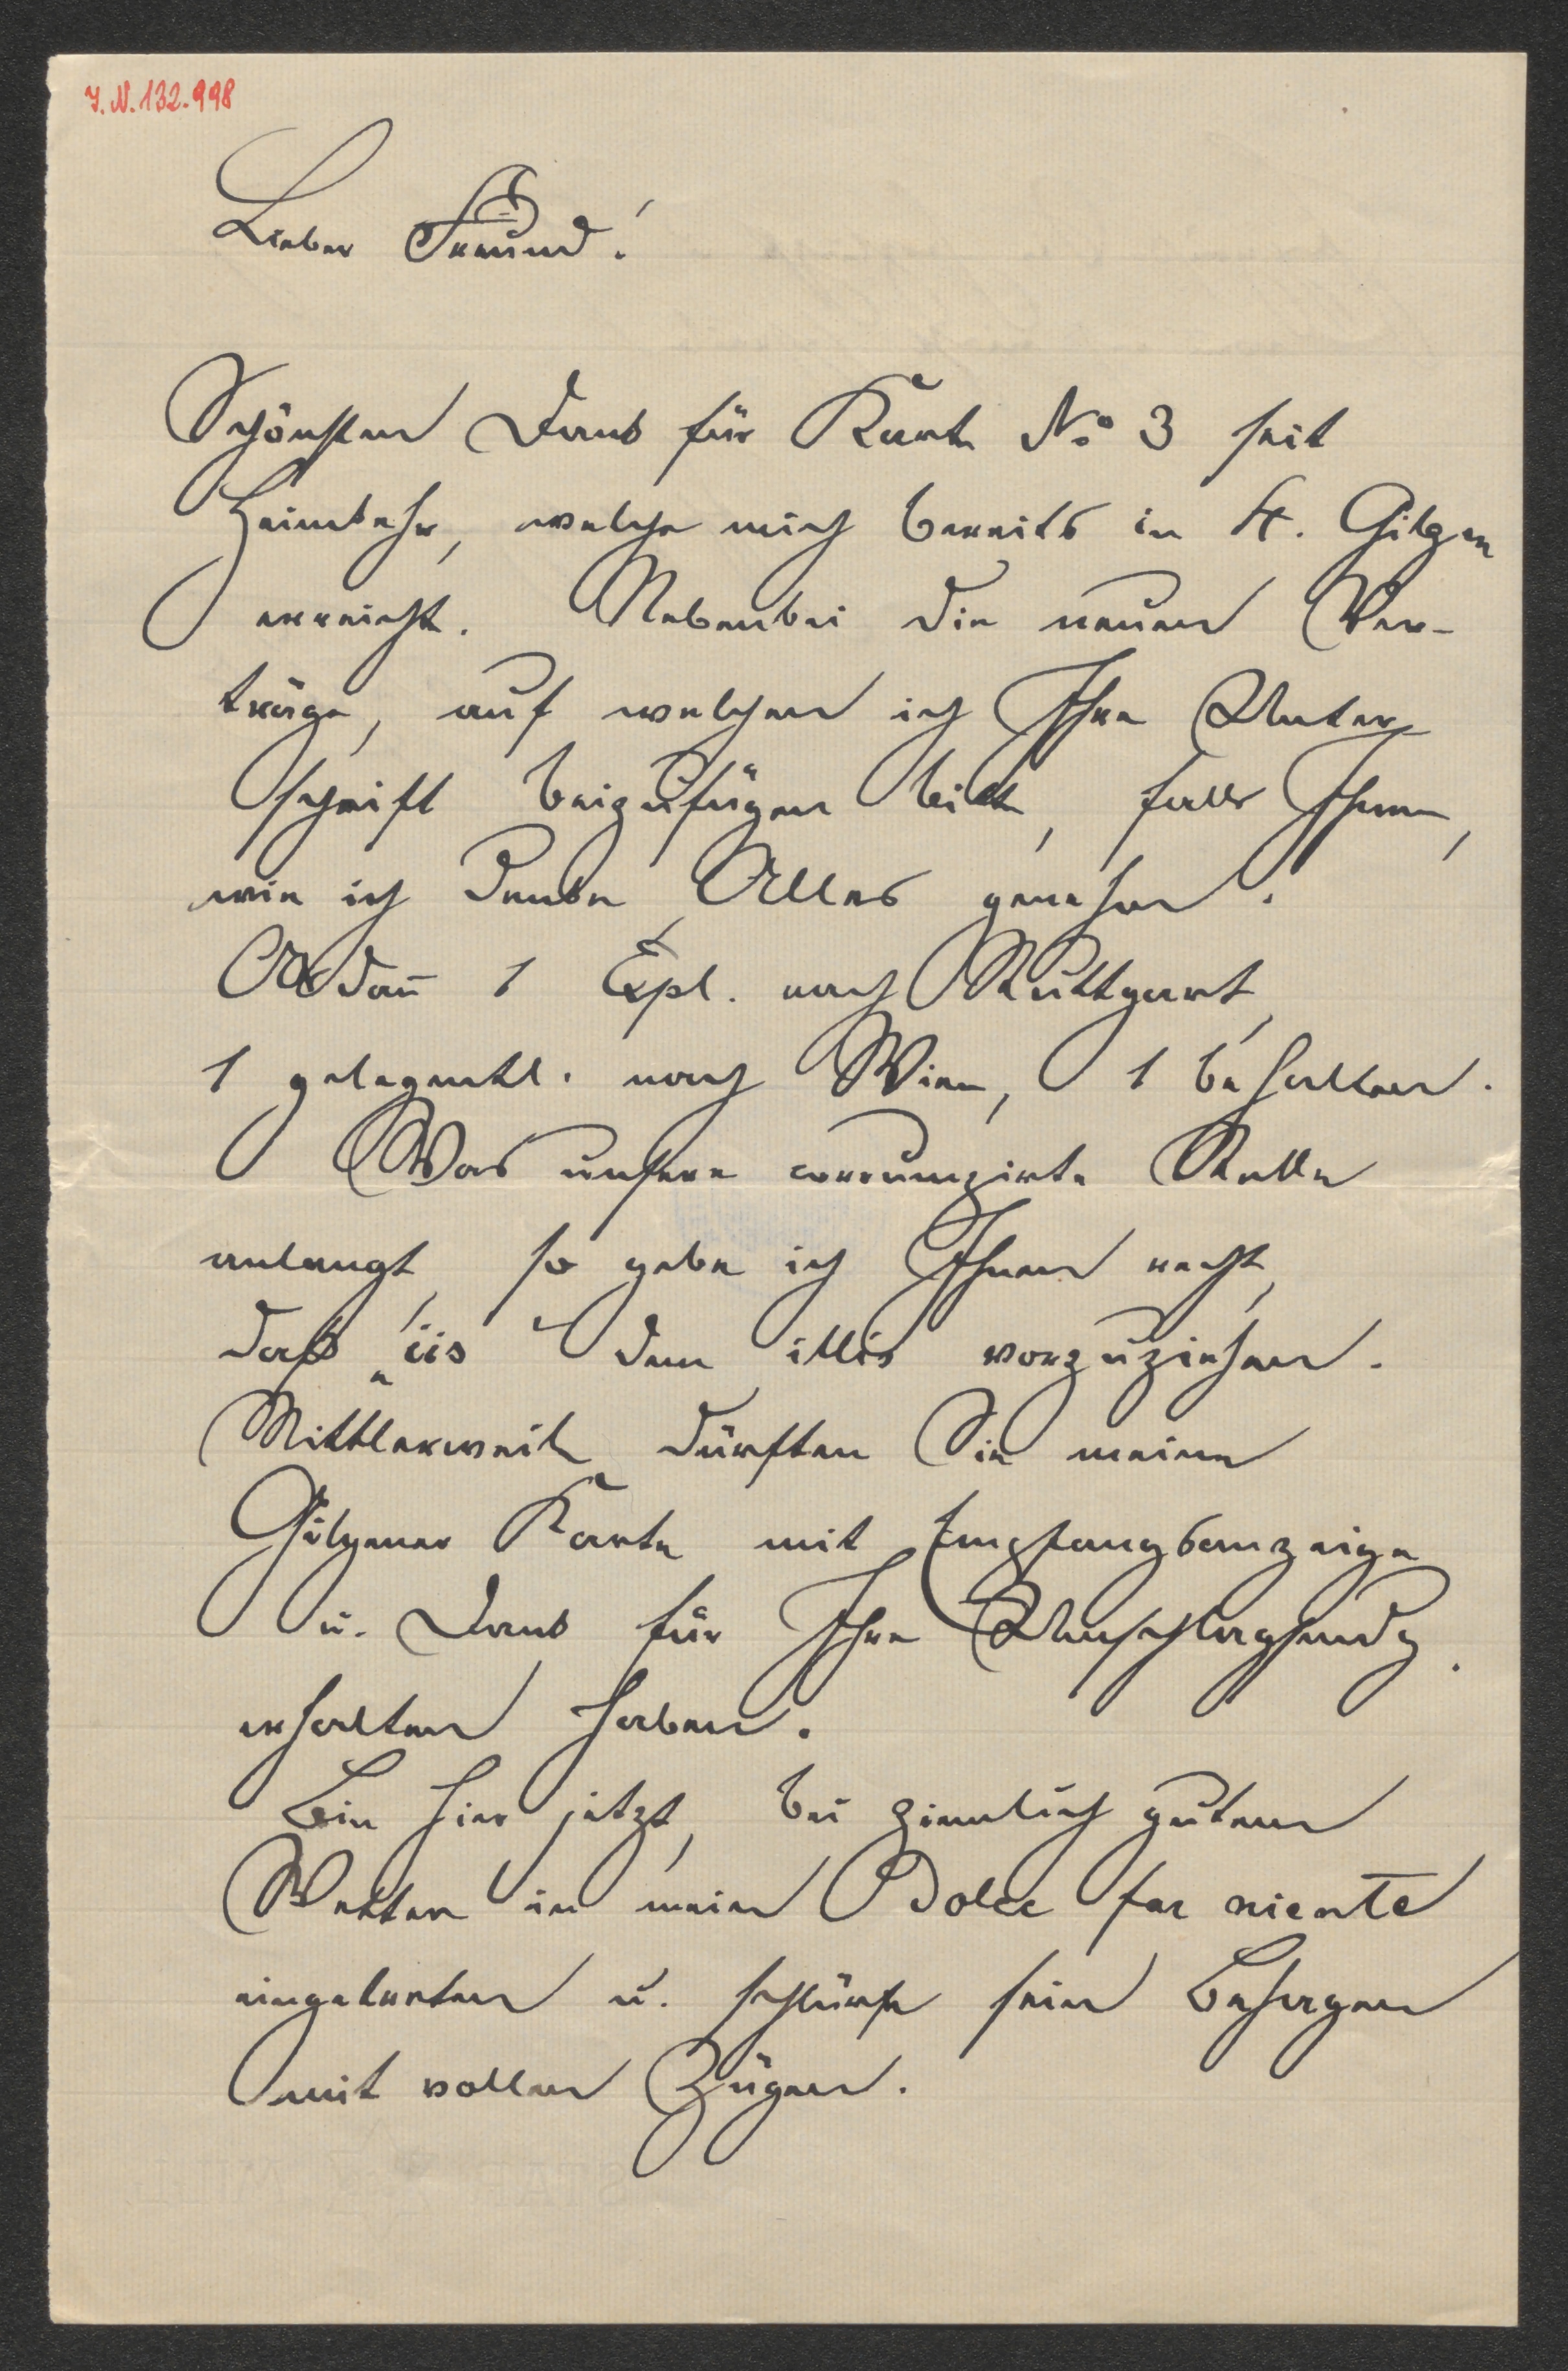 J.N. 132.998
Lieber Freund!
Schönsten Dank für Karte No 3 seit
Heimkehr, welche mich bereits in St. Gilgen
erreicht. Nebenbei die neuen Ver-
träge, auf welchen ich Ihre Unter
schrift beizufügen bitte, falls Ihnen,
wie ich denke, Alles genehm.
Alsdan̄ 1 Expl. nach Stuttgart,
1 gelegentl. nach Wien, 1 behalten.
Was unsere corrumpirte Stelle
anlangt, so gebe ich Ihnen recht,
daß „iis" dem illis vorzuziehen.
Mittlerweile dürften Sie meine
Gilgener Karte mit Empfangsanzeige
u. Dank für Ihre
erhalten haben.
Bin hier jetzt, bei ziemlich gutem
Wetter in mein Dolce far niente
eingetreten u. schlürfe sein Behagen
mit vollen Zügen.